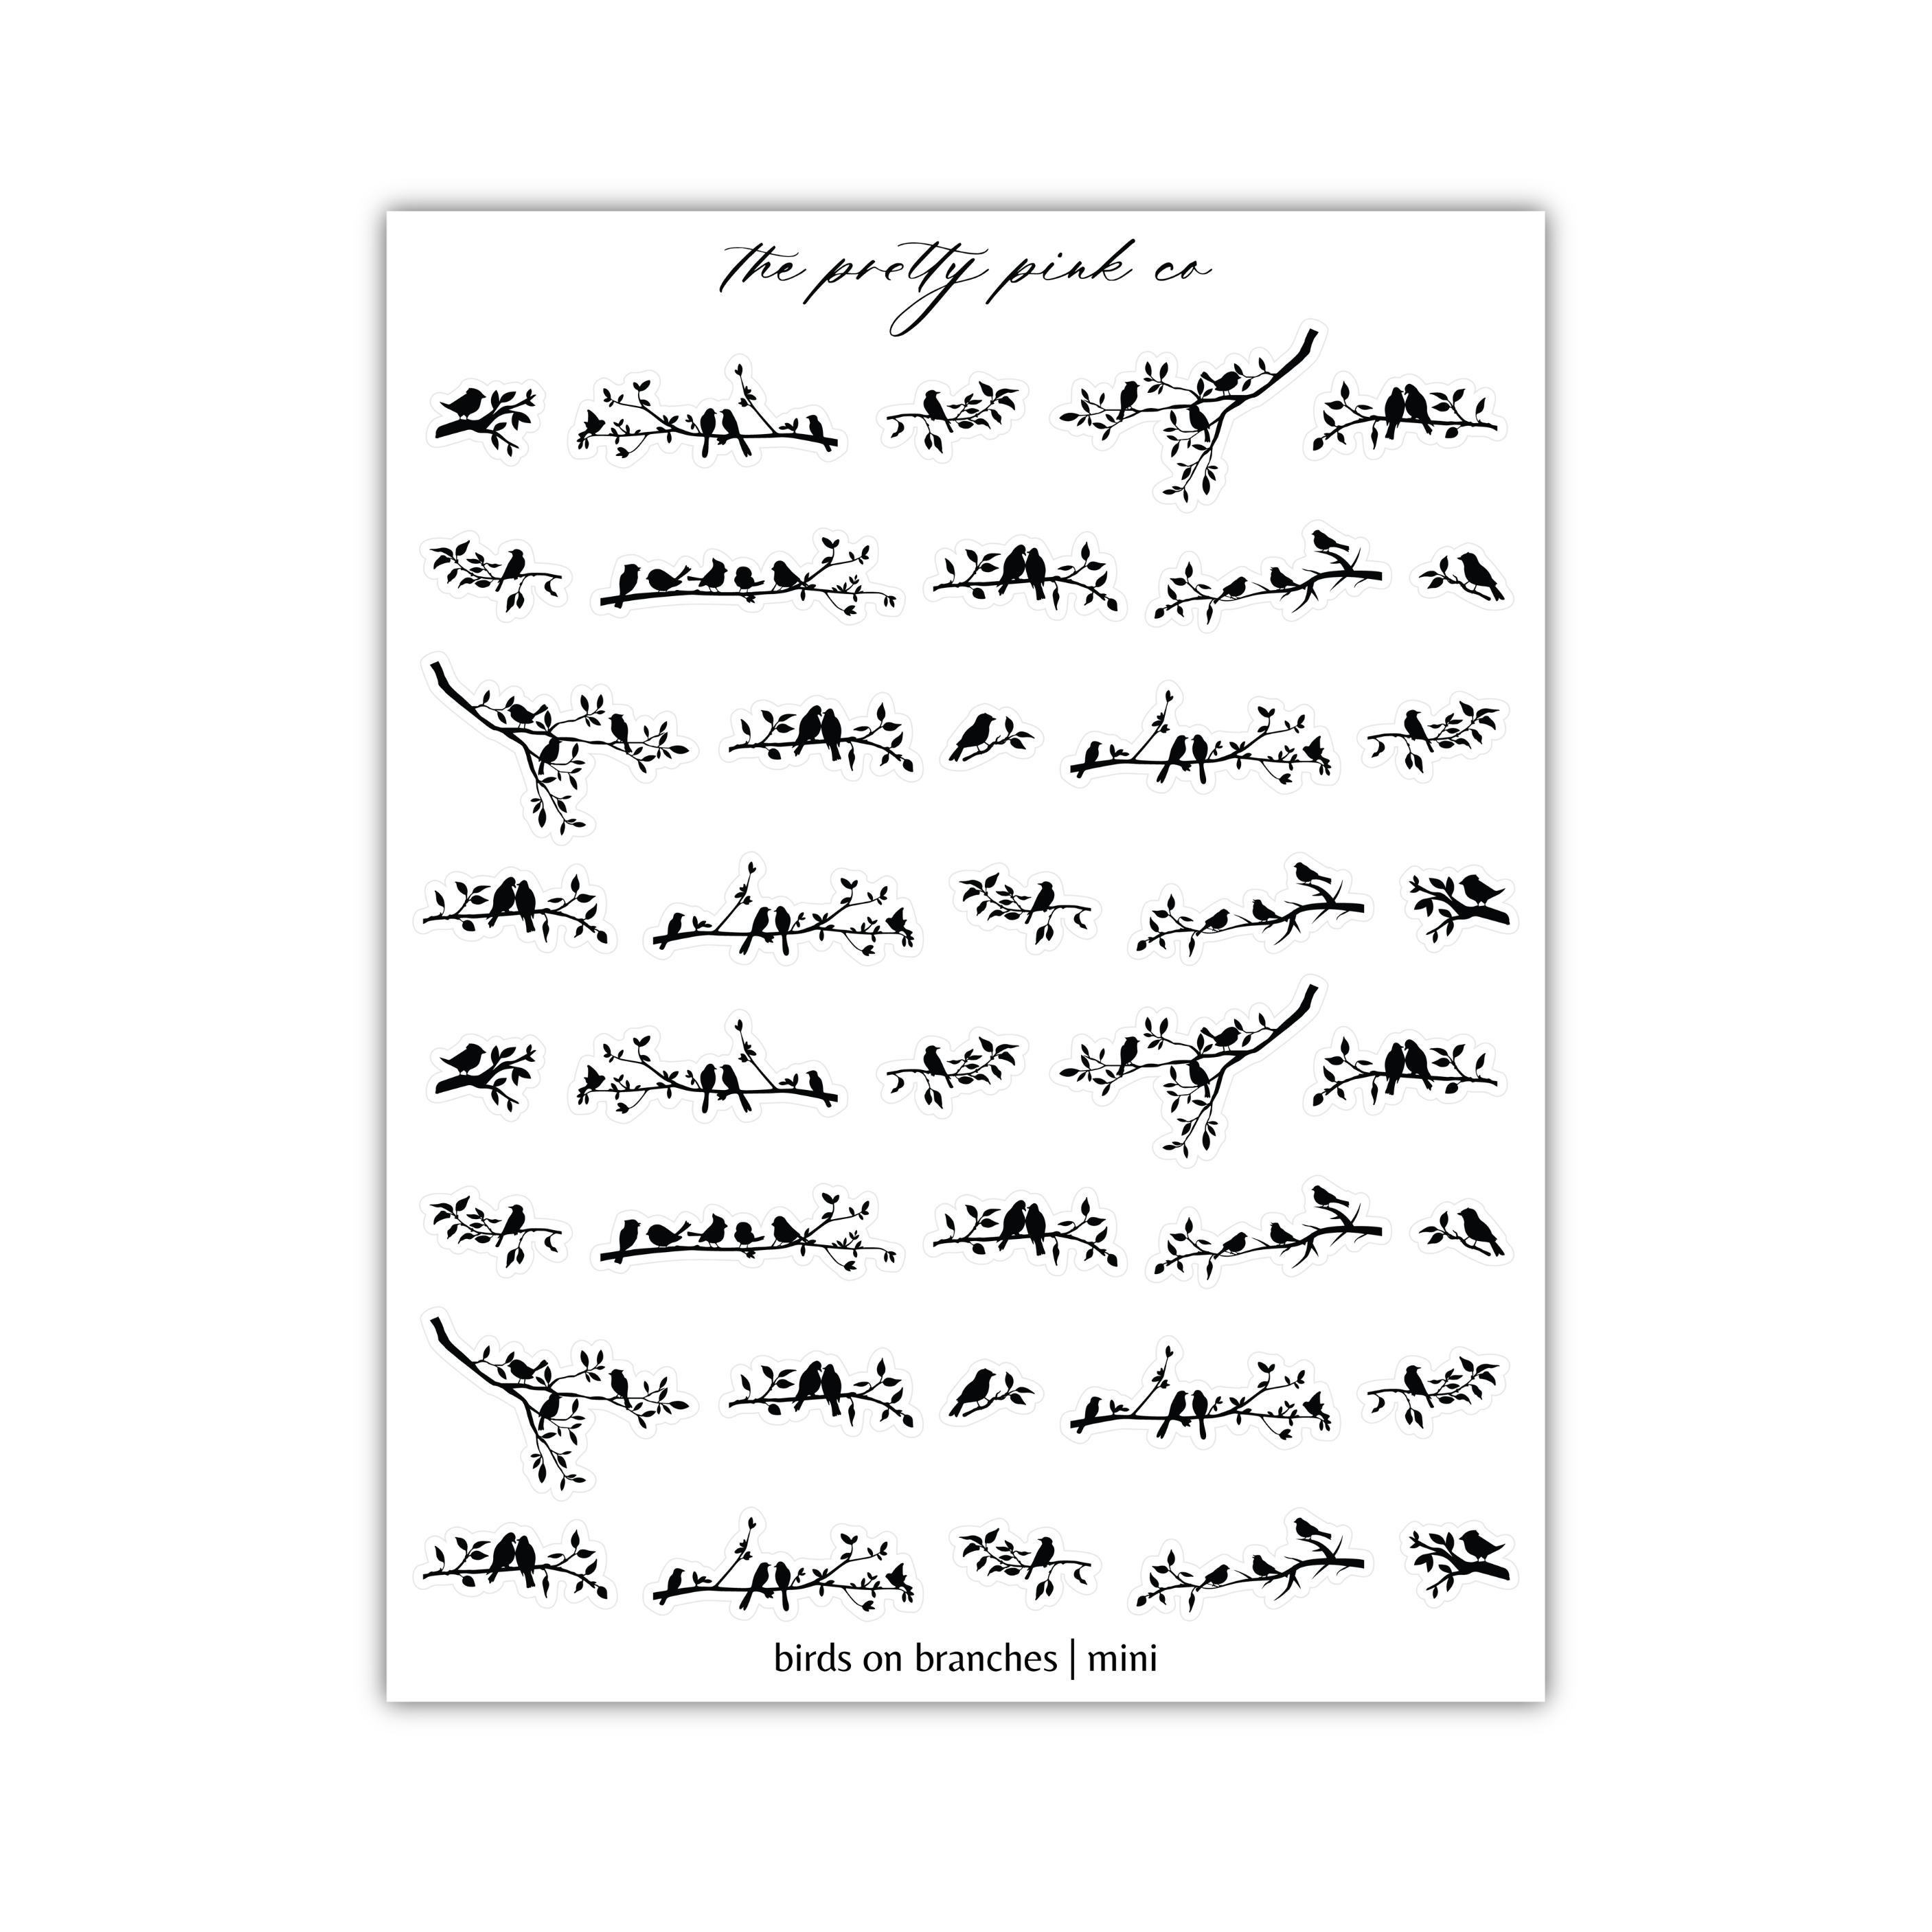 the pretty pink co
birds on branches | mini